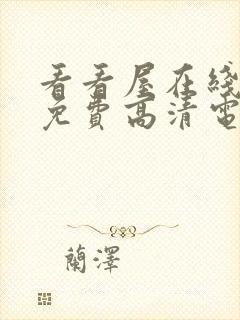 看看屋在线
免費高清電
蘭澤